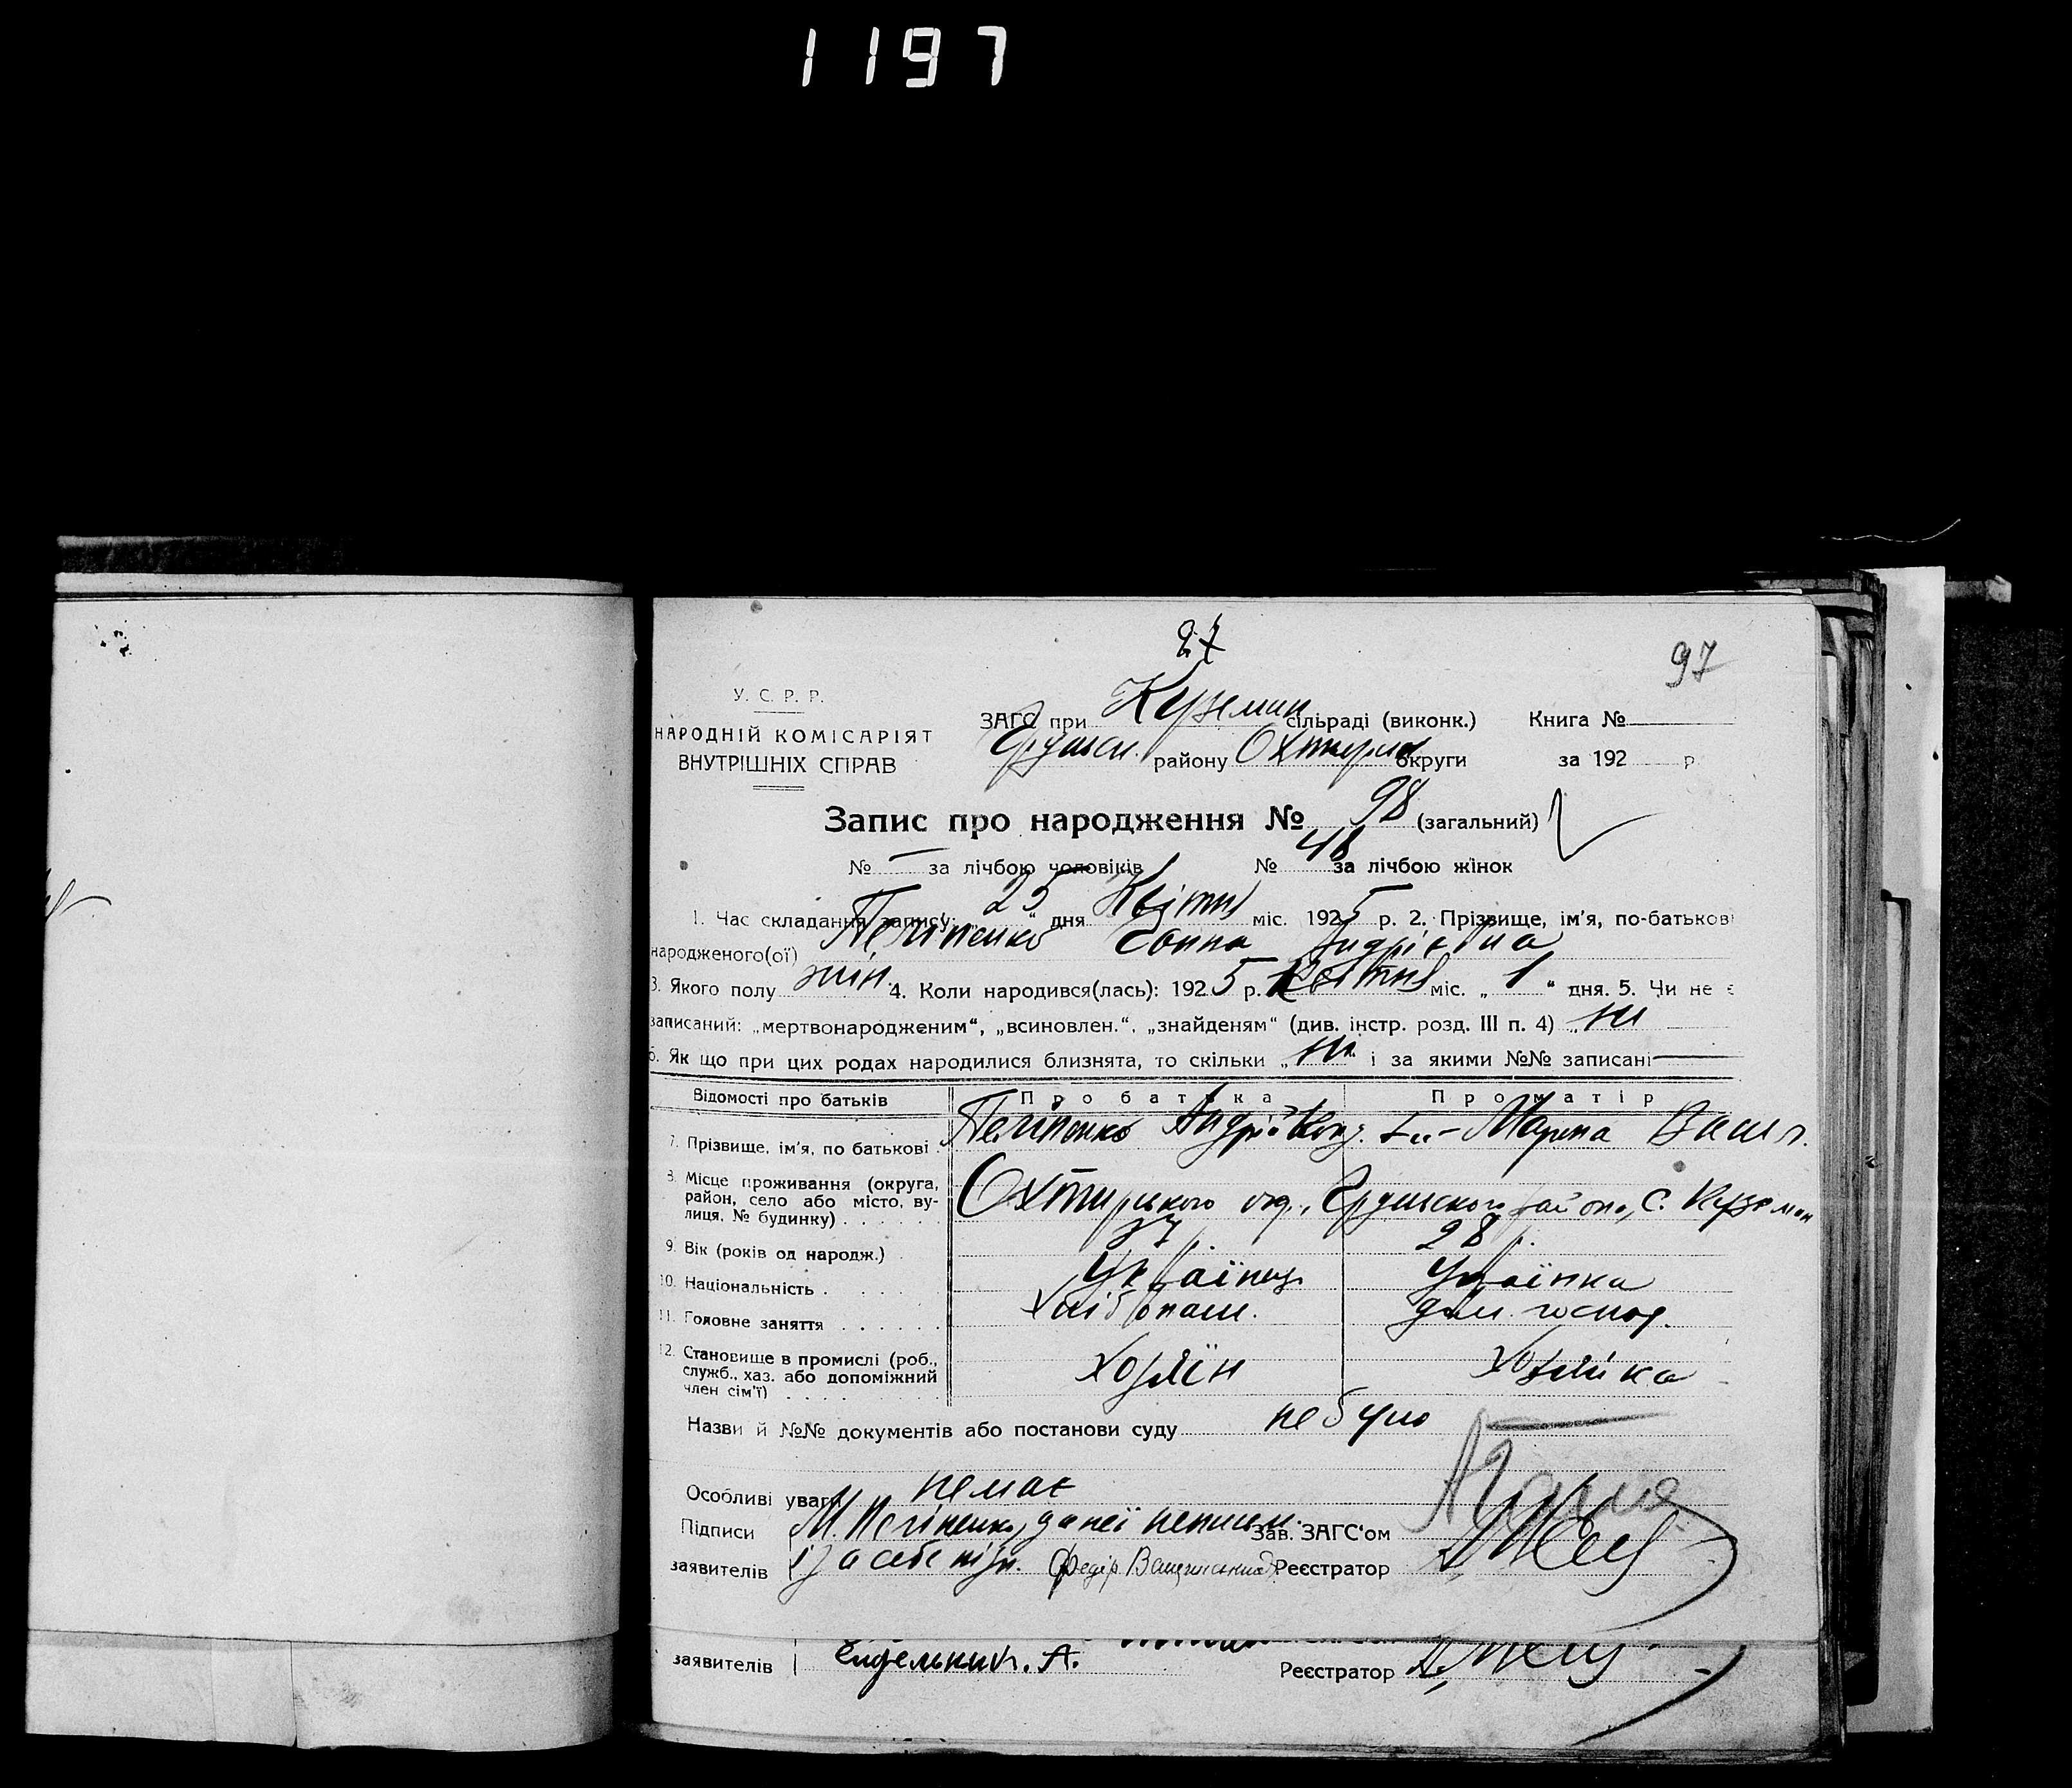 1197
27
97
У. С. Р. Р.
НАРОДНІЙ КОМІСАРІЯТ
ВНУТРІШНІХ СПРАВ
ЗАГС при Куземин сільраді (виконк.) Книга №
Грунськ. району Охтирськ округи за 192 р.
Запис про народження № 98 (загальний)
№ — за лічбою чоловіків № 48 за лічбою жінок
1. Час складання запису: 25 " дня Квітня міс. 1925 р. 2. Прізвище, ім'я, по-батькові
народженого(ої) Ганна Андріївна
3. Якого полу жін. 4. Коли народився(лась): 1925 р. Квітня міс. „ 1 " дня. 5. Чи не є
записаний: „мертвонародженим", „всиновлен.", „знайденям" (див. інстр. розд. III п. 4) „ ні
6. Як що при цих родах народилися близнята, то скільки „ ні і за якими №№ записані
Відомості про батьків Про батька Про матір
7. Прізвище, ім'я, по батькові Андрій Марина Васил.
8. Місце проживання (округа, район, село або місто, вулиця, № будинку) Охтирського окр., Грунського району, С. Куземин
9. Вік (років од народж.) 37 р. 28 р.
10. Національність Українець Українка
11. Головне заняття Хлібопаш. дом. господ.
12. Становище в промислі (роб., служб., хаз. або допоміжний член сім'ї) Хозяїн Хозяйка
Назви й №№ документів або постанови суду не було
Особливі уваги немає
Підписи М. за неї неписьм. Зав. ЗАГС'ом
заявителів і за себе підп. Федір Реєстратор
заявителів А. Реєстратор